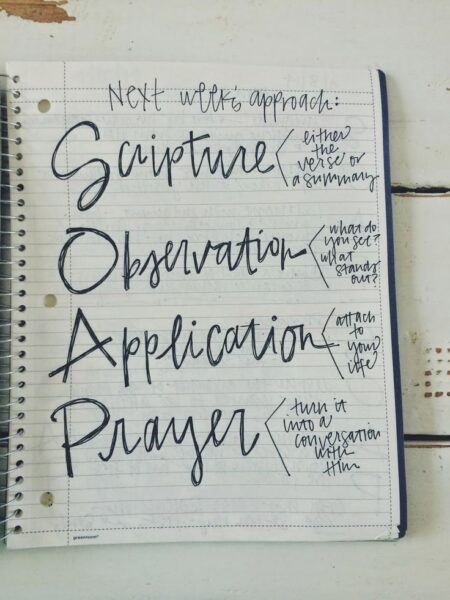 Next week's approach:
Scripture
either
the
verse or
a summary
Observation
what do
you see?
what
stands
out?
Application
attach
to
your
life
Prayer
turn it
into a
conversation
with
Him
greenroom